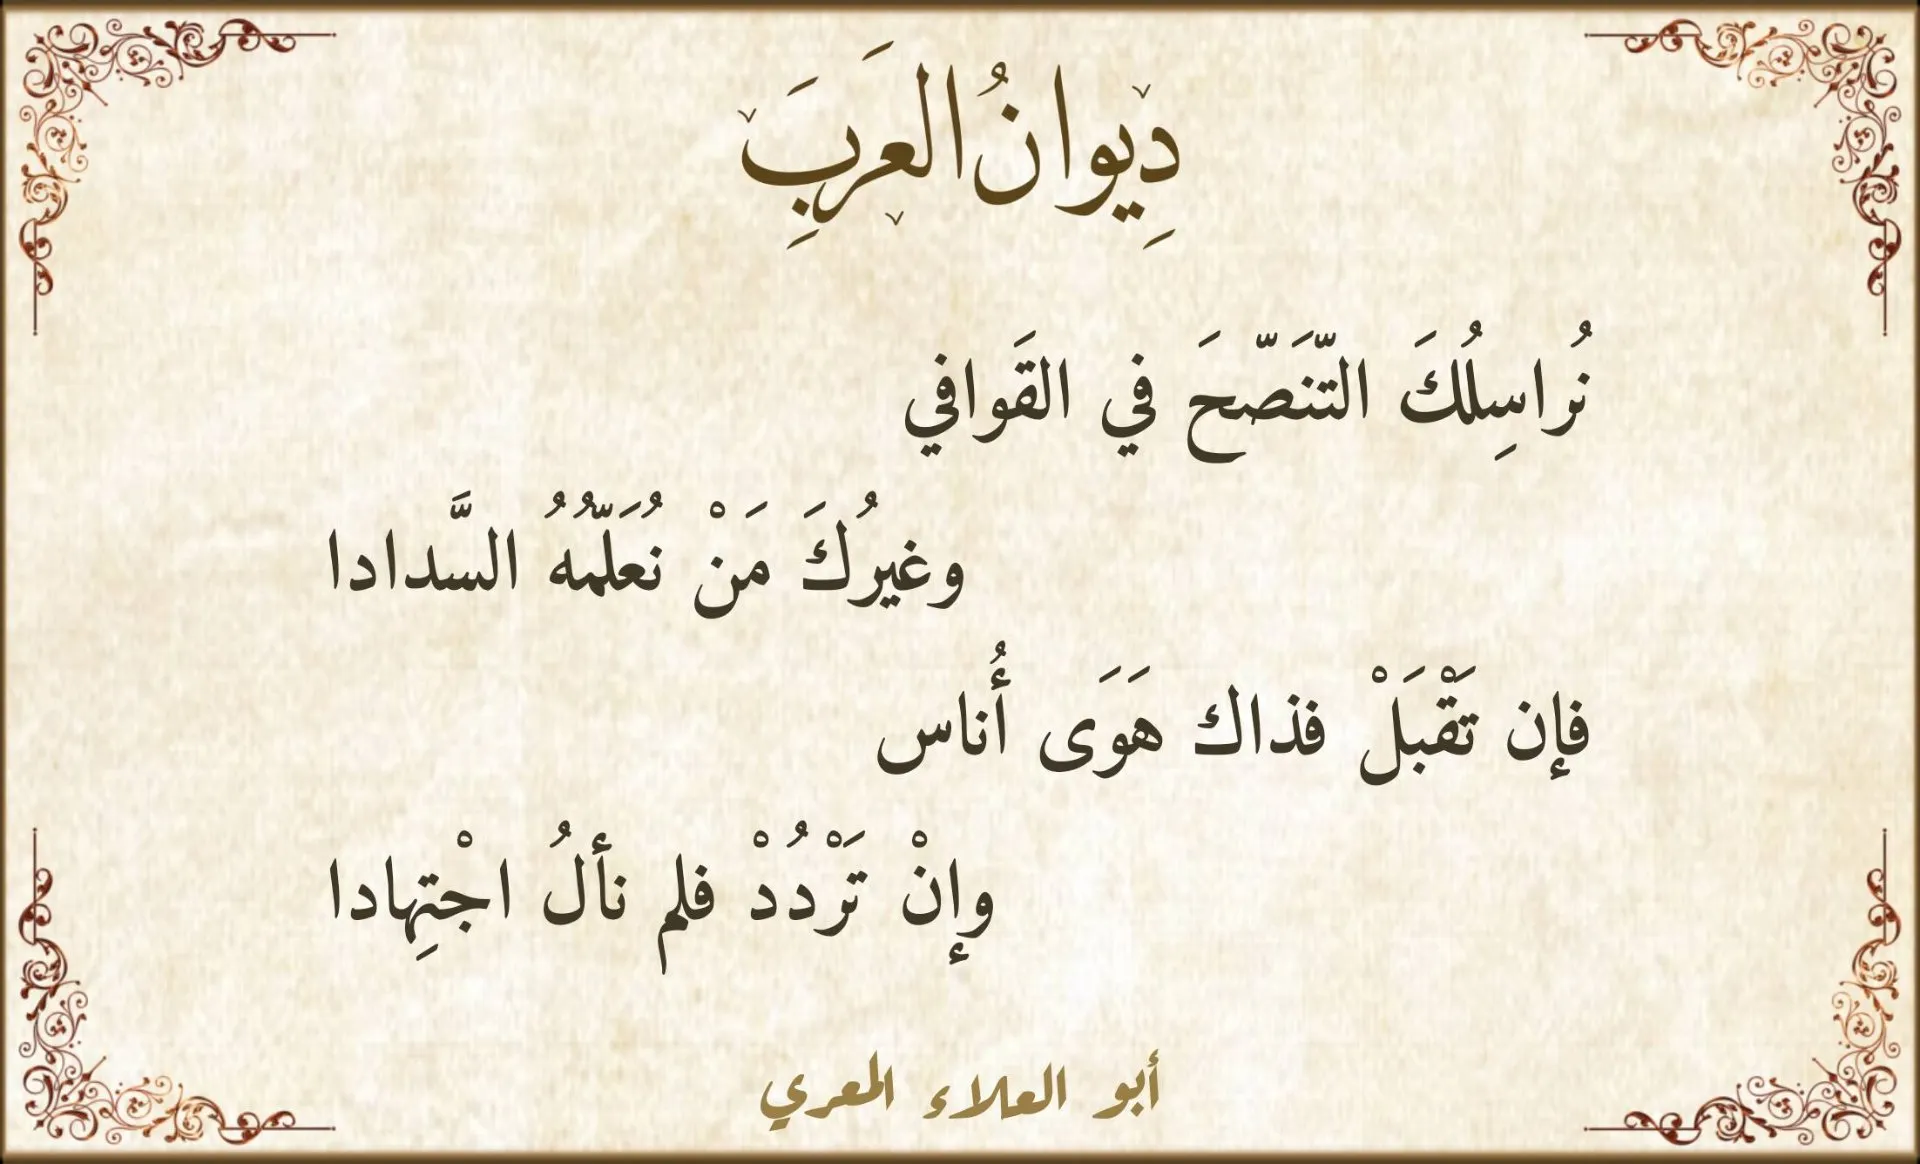 دِيوانُ العَرَبِ
نُراسِلُكَ التّنَصّحَ في القَوافي
وغيرُكَ مَنْ نُعَلّمُهُ السَّدادا
فإن تَقْبَلْ فذاك هَوَى أُناس
وإنْ تَرْدُدْ فلم نألُ اجْتِهادا
أبو العلاء المعري